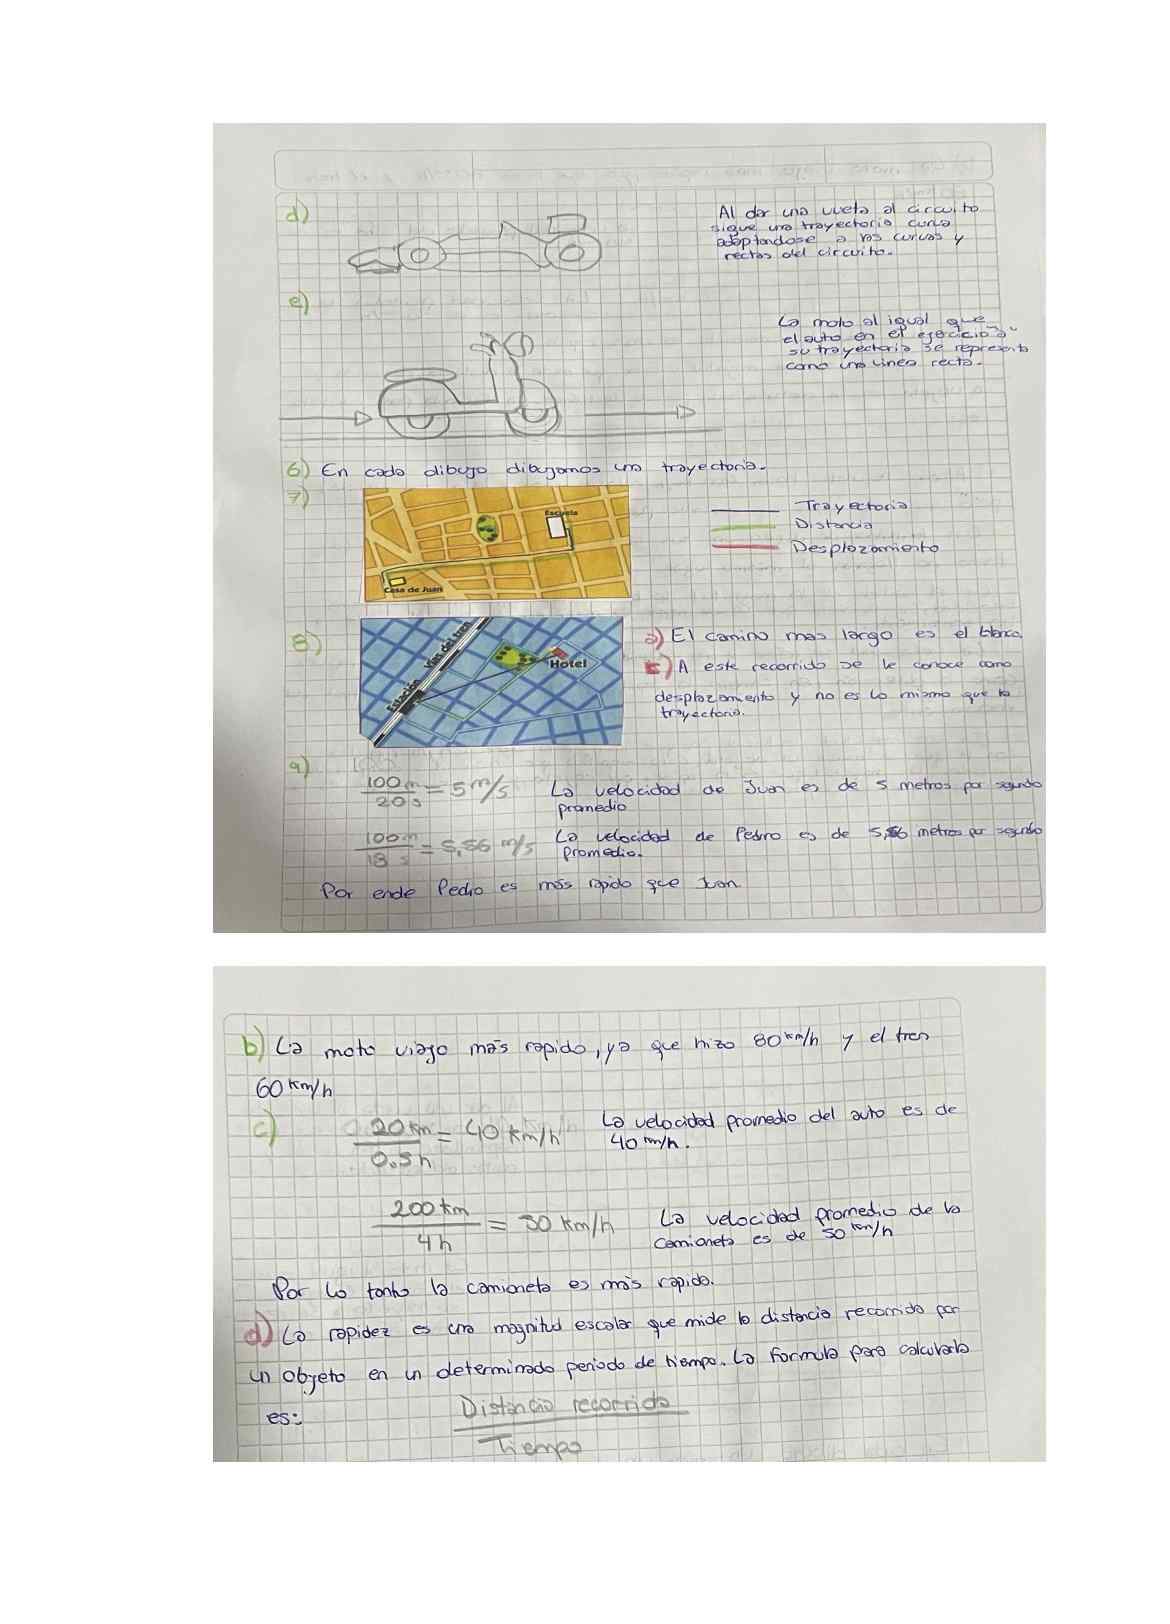 d)
Al dar una vuelta al circuito
sigue una trayectoria curva
adaptandose a las curvas y
rectas del circuito.
e)
La moto al igual que
el auto en el ejercicio "a"
su trayectoria se representa
como una linea recta.
6) En cada dibujo dibujamos una trayectoria.
7)
Escuela
Casa de Juan
Trayectoria
Distancia
Desplazamiento
8)
Vías del tren
Estación
Hotel
a) El camino mas largo es el blanco.
c) A este recorrido se le conoce como
desplazamiento y no es lo mismo que la
trayectoria.
9)
100m/20s = 5 m/s La velocidad de Juan es de 5 metros por segundo
promedio
100m/18 s = 5,56 m/s La velocidad de Pedro es de 5,56 metros por segundo
promedio.
Por ende Pedro es más rapido que Juan
b) La moto viajo más rapido, ya que hizo 80 km/h y el tren
60 km/h
c) 20 km/0.5 h = 40 km/h La velocidad promedio del auto es de
40 km/h.
200 km/4 h = 50 km/h La velocidad promedio de la
camioneta es de 50 km/h
Por lo tanto la camioneta es más rapida.
d) La rapidez es una magnitud escalar que mide la distancia recorrida por
un objeto en un determinado periodo de tiempo. La formula para calcularla
es: Distancia recorrida
Tiempo